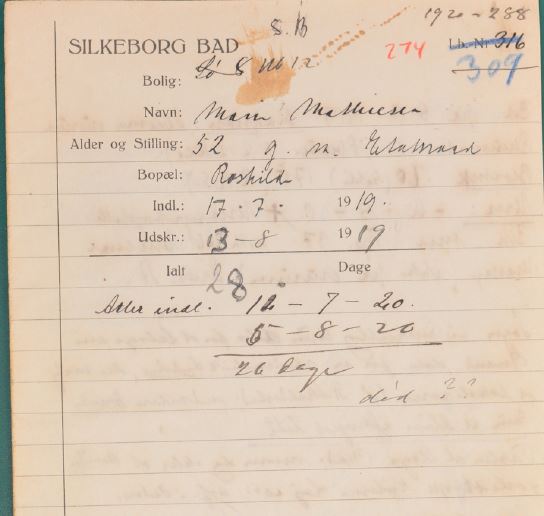 1920-288
S.B
274
Lb. Nr 316
309
SILKEBORG BAD
Bolig:
Navn: Marie Mathiesen
Alder og Stilling: 52 g. m.
Bopæl: Roskilde
Indl.: 17.7. 1919.
Udskr.: 13-8 1919
Ialt 28 Dage
Atter indl. 12-7-20.
5-8-20
26 Dage
død ??